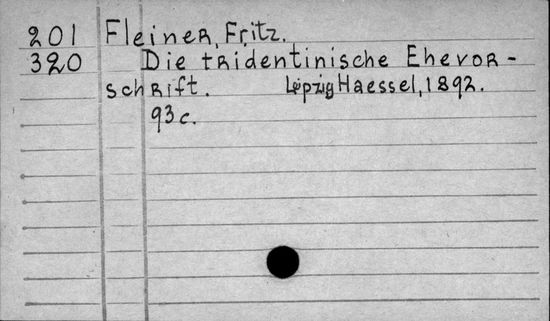 201 Fleiner, Fritz.
320 Die tridentinische Ehevor-
schrift. Leipzig Haessel, 1892.
93 c.